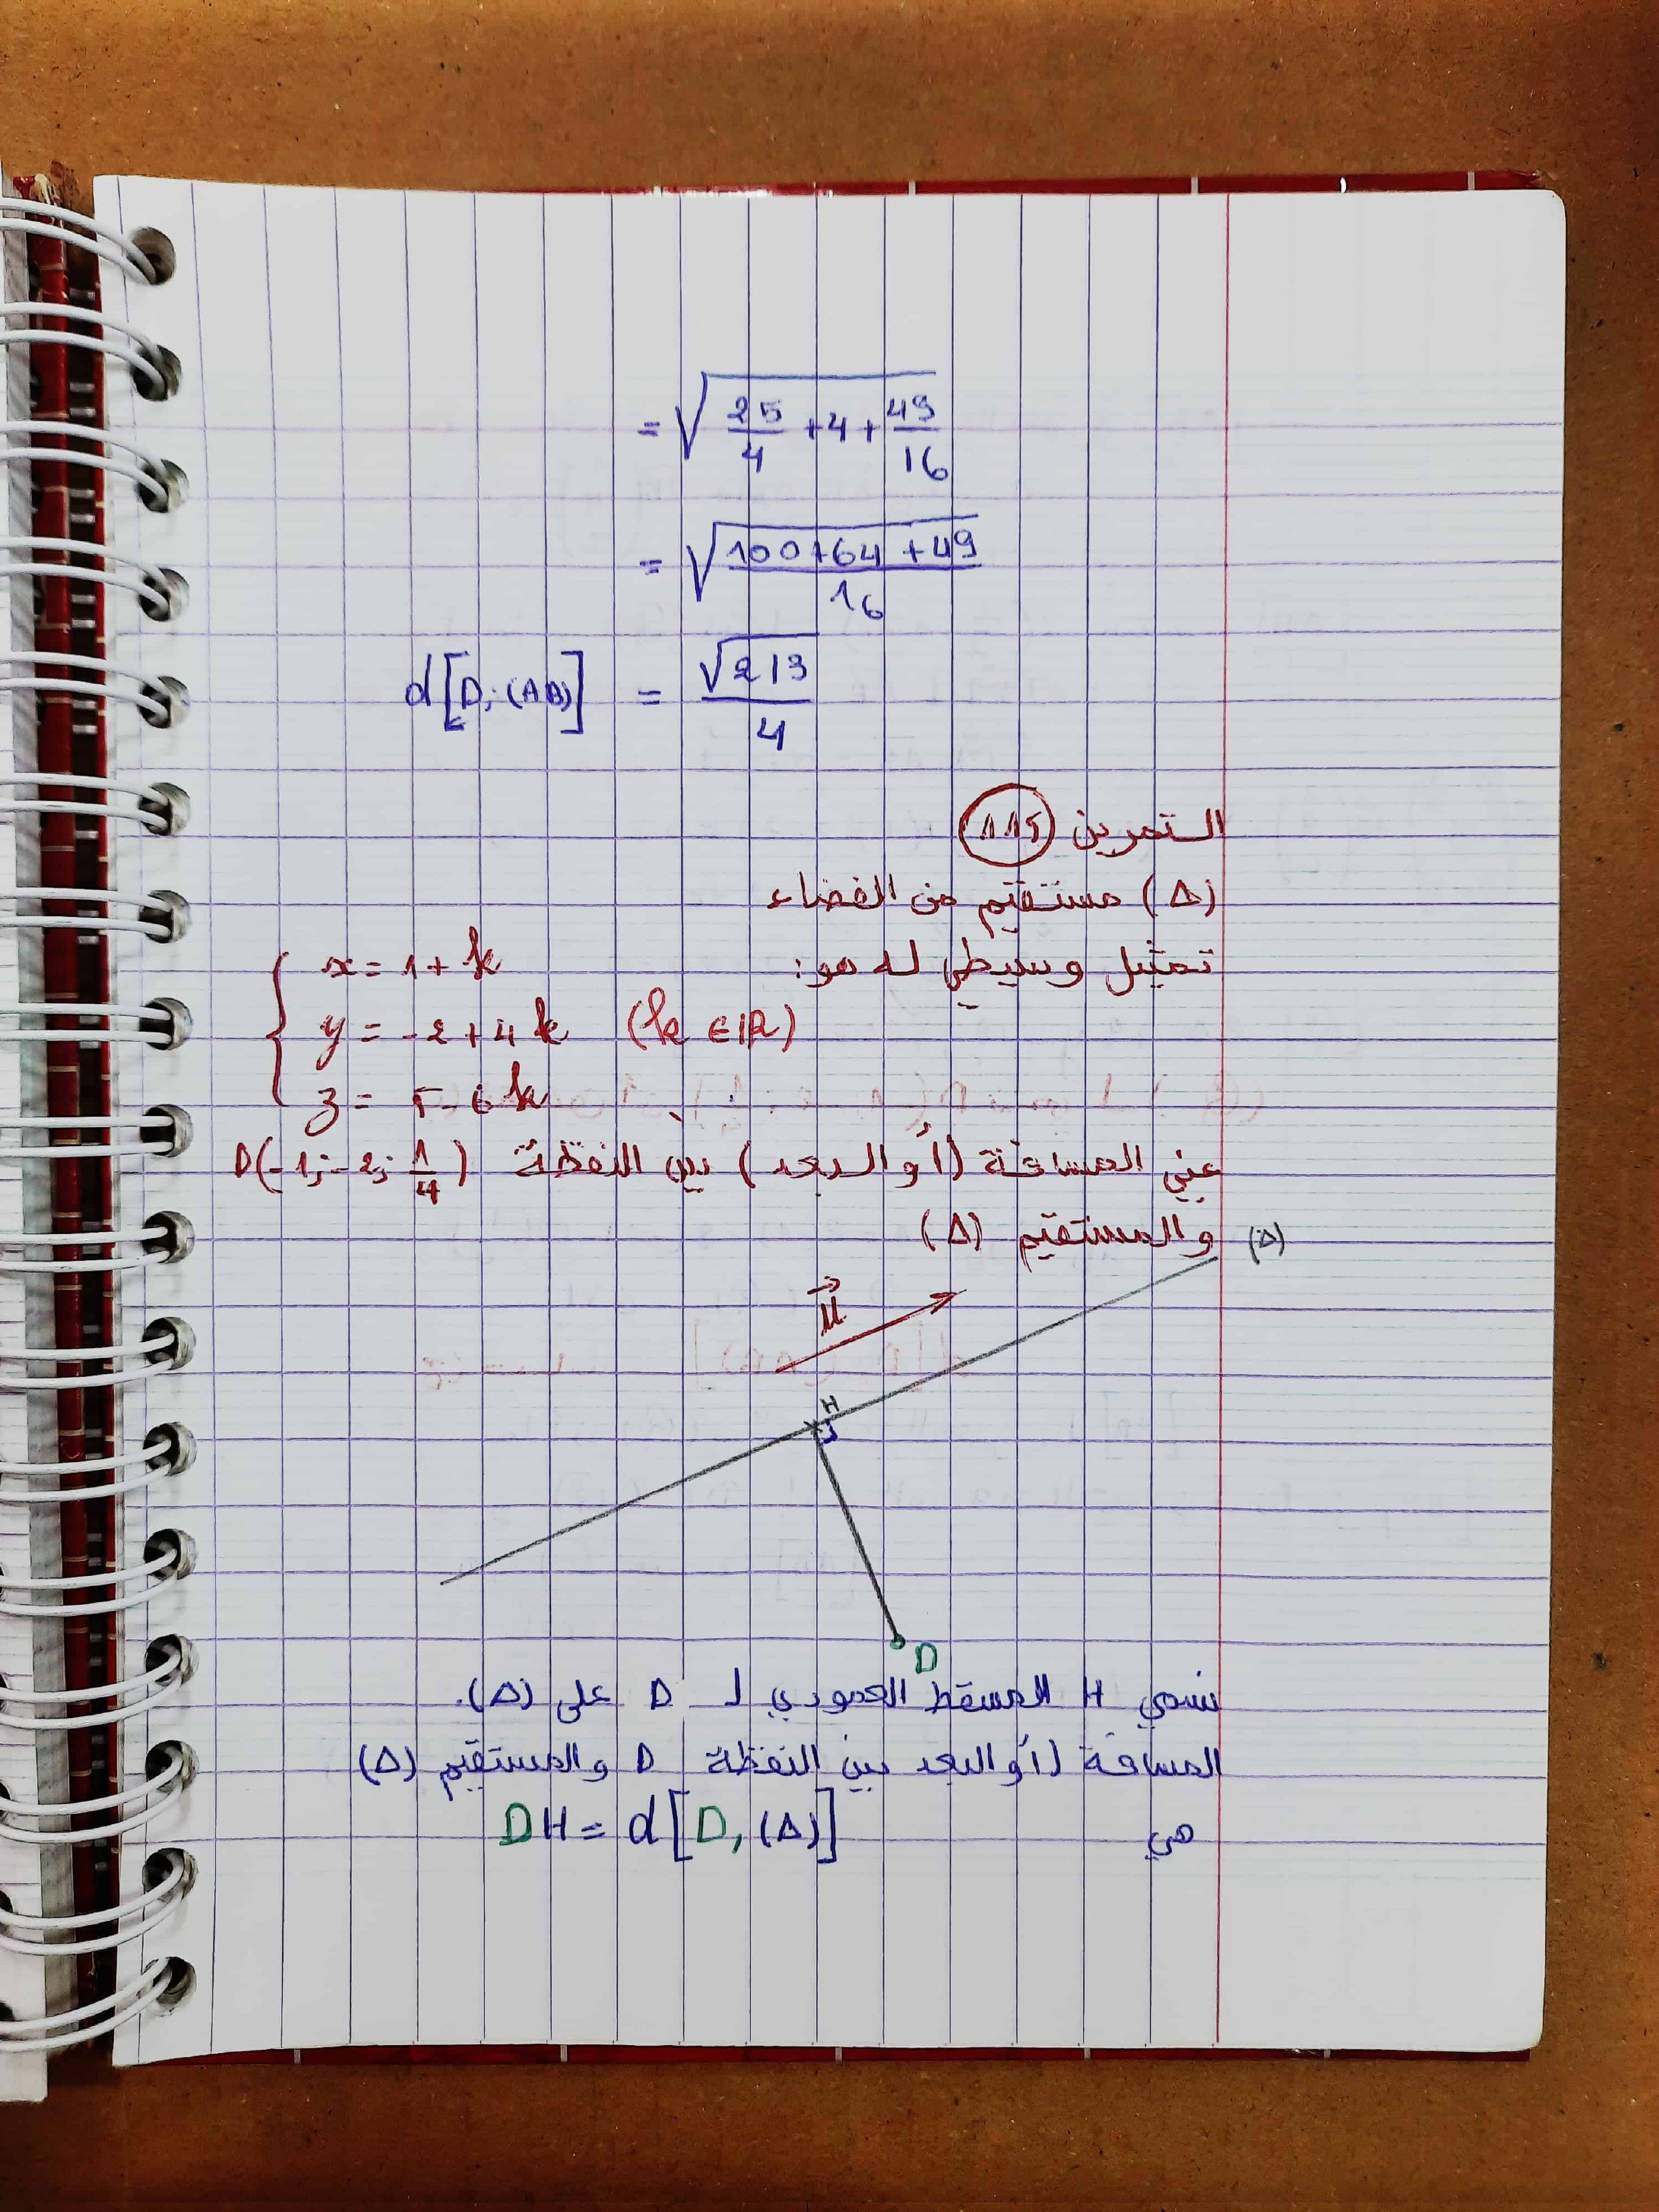 = √(25/4 + 4 + 49/16)
= √((100+64+49)/16)
d[D; (AB)] = √213/4
التمرين 115
(Δ) مستقيم من الفضاء
تمثيل وسيطي له هو:
{ x = 1 + k
y = -2 + 4k (k ∈ ℝ)
z = 5 - 6k
عيني المسافة (أو البعد) بين النقطة D(-1; -2; 1/4)
والمستقيم (Δ)
(Δ)
u⃗
H
D
نسمي H المسقط العمودي لـ D على (Δ).
المسافة (أو البعد بين النقطة D والمستقيم (Δ)
هي DH = d[D, (Δ)]